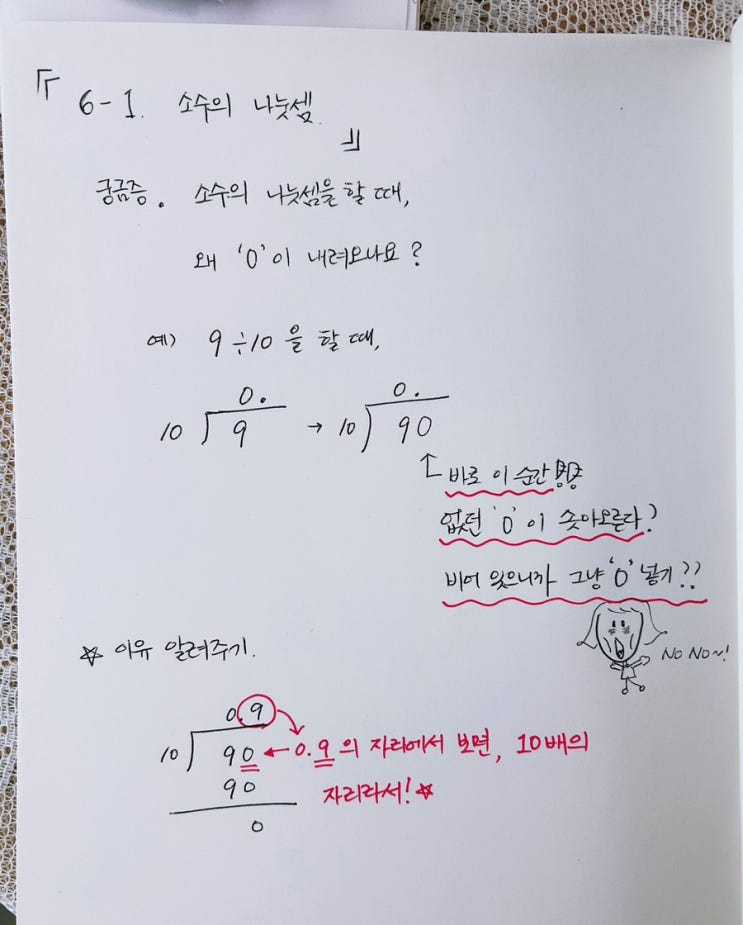 『
6-1. 소수의 나눗셈.
』
궁금증. 소수의 나눗셈을 할 때,
왜 '0'이 내려오나요?
예) 9÷10을 할 때,
0. 0.
10 9 → 10 90
바로 이 순간!!
없던 '0'이 솟아오른다?
비어 있으니까 그냥 '0' 넣기??
NO NO~!
☆ 이유 알려주기.
0.9
10 90 ← 0.9의 자리에서 보면, 10배의
90 자리라서!☆
0